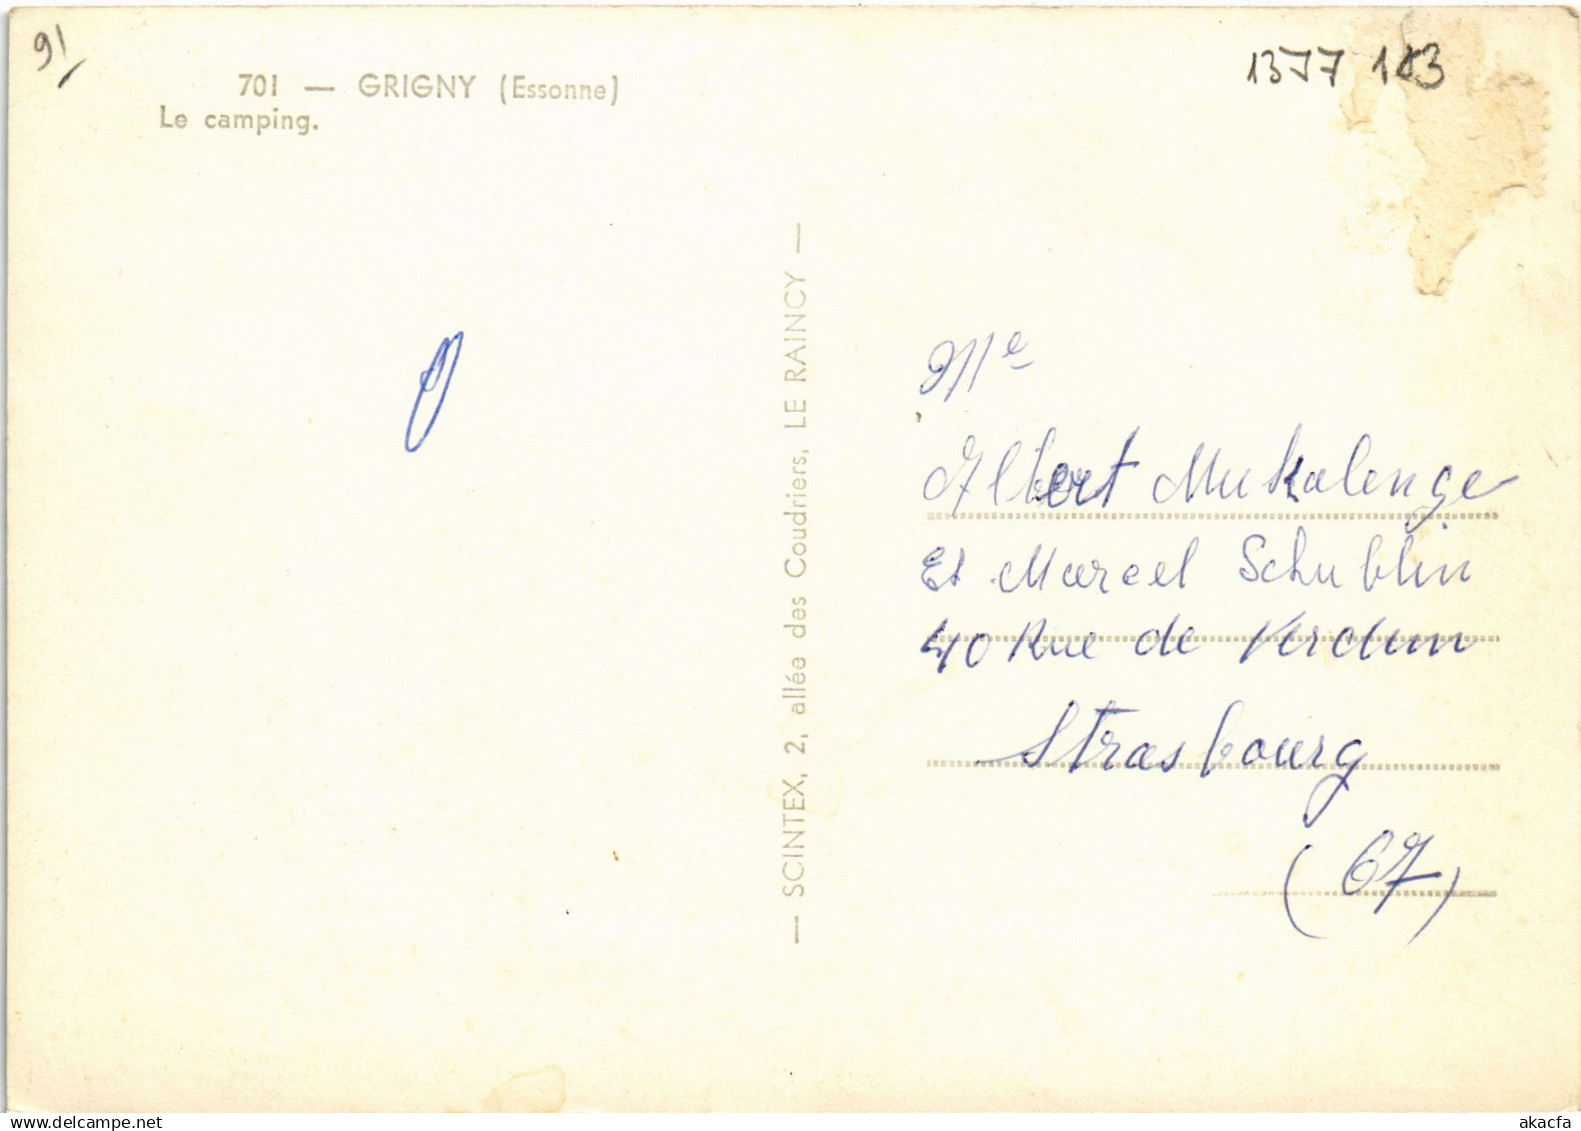 91
1377 183
701 — GRIGNY (Essonne)
Le camping.
— SCINTEX, 2, allée des Coudriers, LE RAINCY —
Me
Albert Mukalenge
Et Marcel Schublin
40 Rue de Verdun
Strasbourg
(67)
www.delcampe.net
akacfa